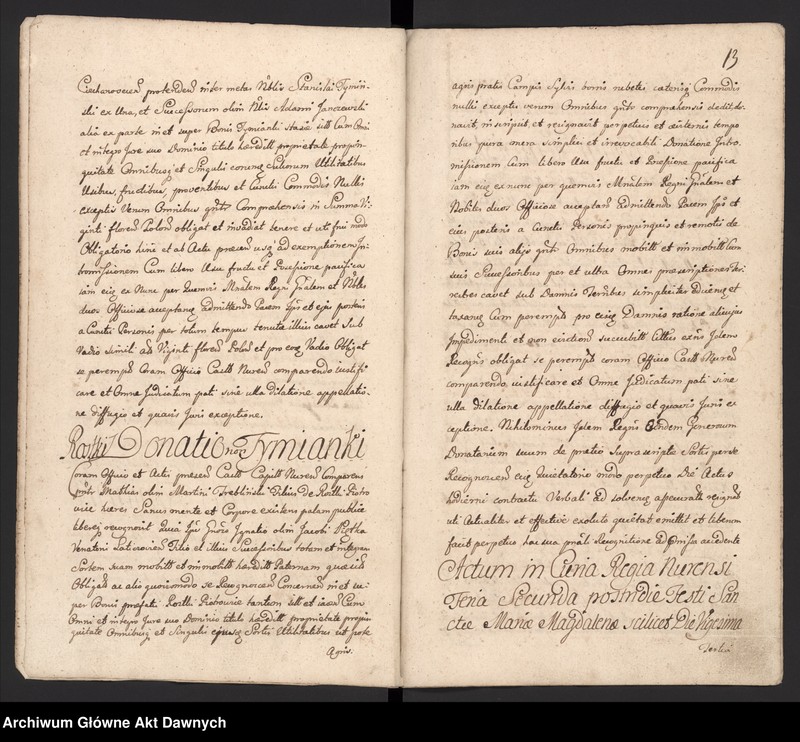 Ciechanovecen protenden inter metas Nblis Stanislai Tymin-
ski ex Una, et Successorum olim Nlis Adami Janczewski
alia ex parte in et super Bonis Tymianki Stasie sitt Cum Omni
et integro Jure suo Dominio titulo hæreditt proprietate propin-
quitate Omnibusq et Singulis eorunq Sultorum Utilitatibus
Usibus, fructibus, proventibus et Cunctis Commodis Nullis
exceptis Verum Omnibus gntr Compræhensis in Summa Vi-
ginti floren Polon obligat et invadiat tenere et uti frui modo
Obligatorio hinc et ab Actu præsen usq ad exemptionem In-
tromissionem Cum libero Usu fructu et Possessione pacifica
iam eiq ex Nunc per quemvis Mnalem Regni Gnalem et Nobles
duos Officiose acceptanq admittendo Pacem Ipsi et ejus posteris
a Cunctis Personis per totum tempus tenutæ illius cavet Sub
Vadio simili ad Viginti floren Polon et pro eoq Vadio Obligat
se peremptr Coram Officio Castt Nuren comparendo iustifi
care et Omne Judicatum pati sine ulla dilatione appellatio-
ne diffugio et quavis Juris exceptione.
Rostki Donatio noe Tymianki
Coram Officio et Actis præsen Castt Capitt Nuren Comparens
pntr Mathias olim Martini Trebliński Filius de Rostki Piotro
vice hæres Sanus mente et Corpore existens palam publice
libereq recognovit Quia Ipse Gnoso Ignatio olim Jacobi Pietka
Venatori Laticzovien Filio et illius Successoribus totam et integram
Sortem suam mobilt et immobilt hæreditt Paternam quævis
Obligat ac alio quovismodo se Recognoscen Concernen in et su-
per Bonis præfatis Rostki Piotrowice tantum sitt et iacen Cum
Omni et integro Jure suo Dominio titulo hæreditt proprietate propin
quitate Omnibusq et Singulis ejusq Sortis Utilitatibus ut pote
Agris.
13
agris pratis Campis Sylvis borris rubetis cæterisq Commodis
nullis exceptis verum Omnibus gntr comprehensis dedit, do-
navit, inscripsit, et resignavit perpetuis et æternis tempo
ribus pura mera simplici et irrevocabili Donatione Intro
missionem Cum libero Usu fructu et Possessione pacifica
iam eiq exnunc per quemvis Mnalem Regni Gnalem et
Nobiles duos Officiose acceptan Admittendo Pacem Ipsi et
eius posteris a Cunctis Personis propinquis et remotis de
Bonis suis alijs gntr Omnibus mobilt et immobilt Cum
suis Successoribus per et ultra Omnes præscriptiones Ter
restres cavet sub Damnis Terribus simpliciter edicenq et
taxanq Cum peremptr pro eisq Damnis ratione alicujus
Impediment et non eviction succubitt Citus exns Idem
Recogns obligat se peremptr coram Officio Castt Nuren
comparendo iustificare et Omne Judicatum pati sine
ulla dilatione appellatione diffugio et quavis Juris ex
ceptione. Nihilominus Idem Regns Eundem Generosum
Donatarium suum de pretio Suprascriptæ Sortis per se
Recognoscen eiq Quietatorio modo perpetuo Die Actus
hodierni contractu Verbali Ad solvenq assecurati reignoscit
uti Actualiter et effective exoluto quietat emittit et liberum
facit perpetuo hac sua pnali Recognitione Ad Præmissa accedente
Actum in Curia Regia Nurensi
Feria Secunda postridie Festi San
ctæ Mariæ Magdalenæ scilicet Die Vigesima
Tertia